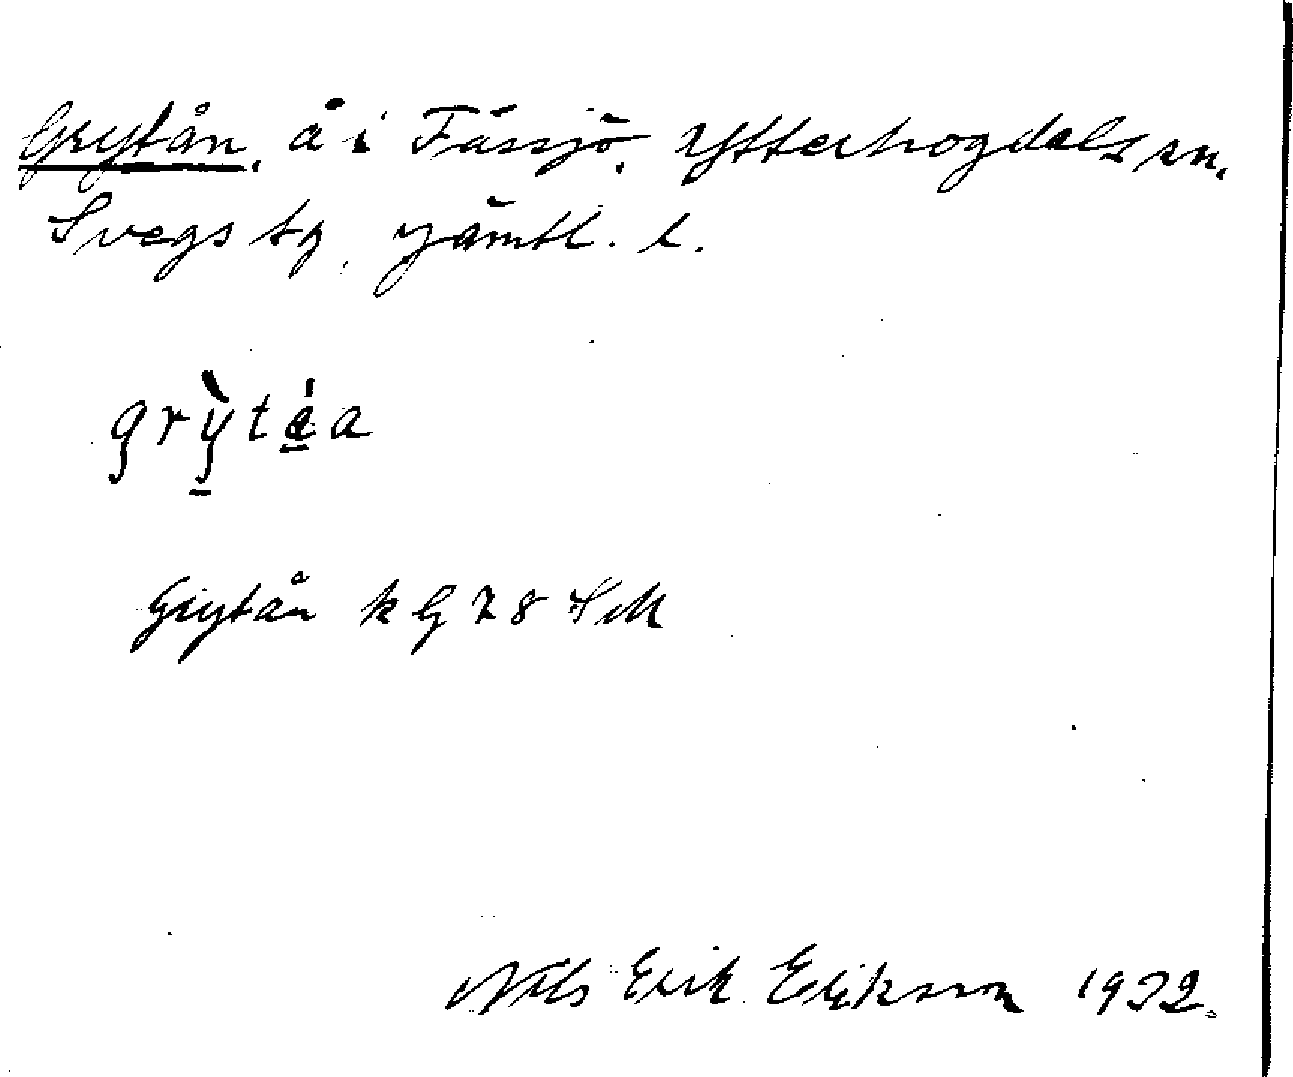 Grytån, å i Fåssjö, Ytterhogdals sn,
Svegs tg, Jämtl. l.
grỳtáa
Grytån k G 28 SM
Nils Erik Erikson 1932.